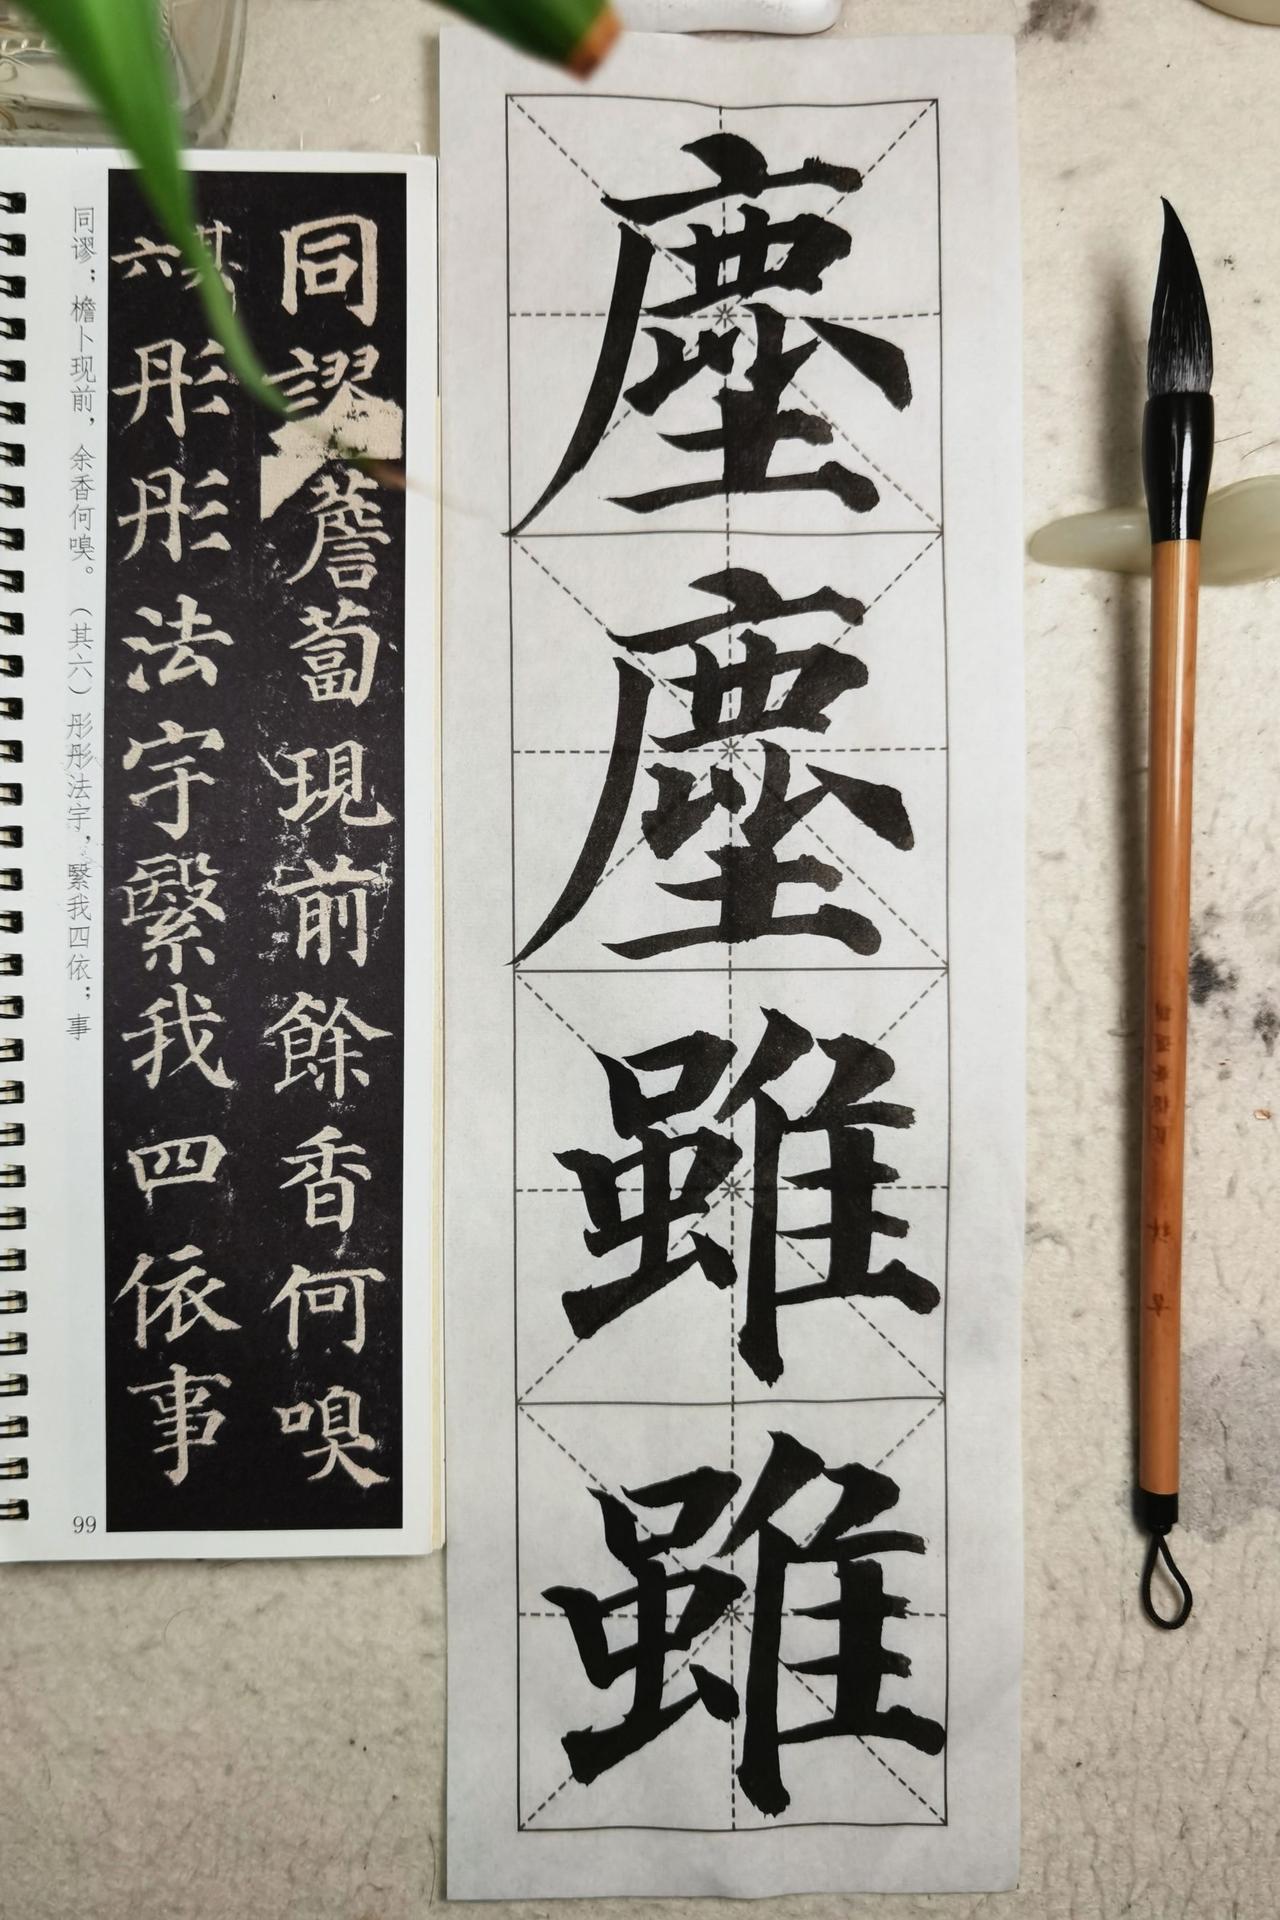 塵塵雖雖
同謬薝蔔現前餘香何嗅
其六彤彤法宇繄我四依事
同谬；檐卜现前，余香何嗅。（其六）彤彤法宇，繄我四依；事
99